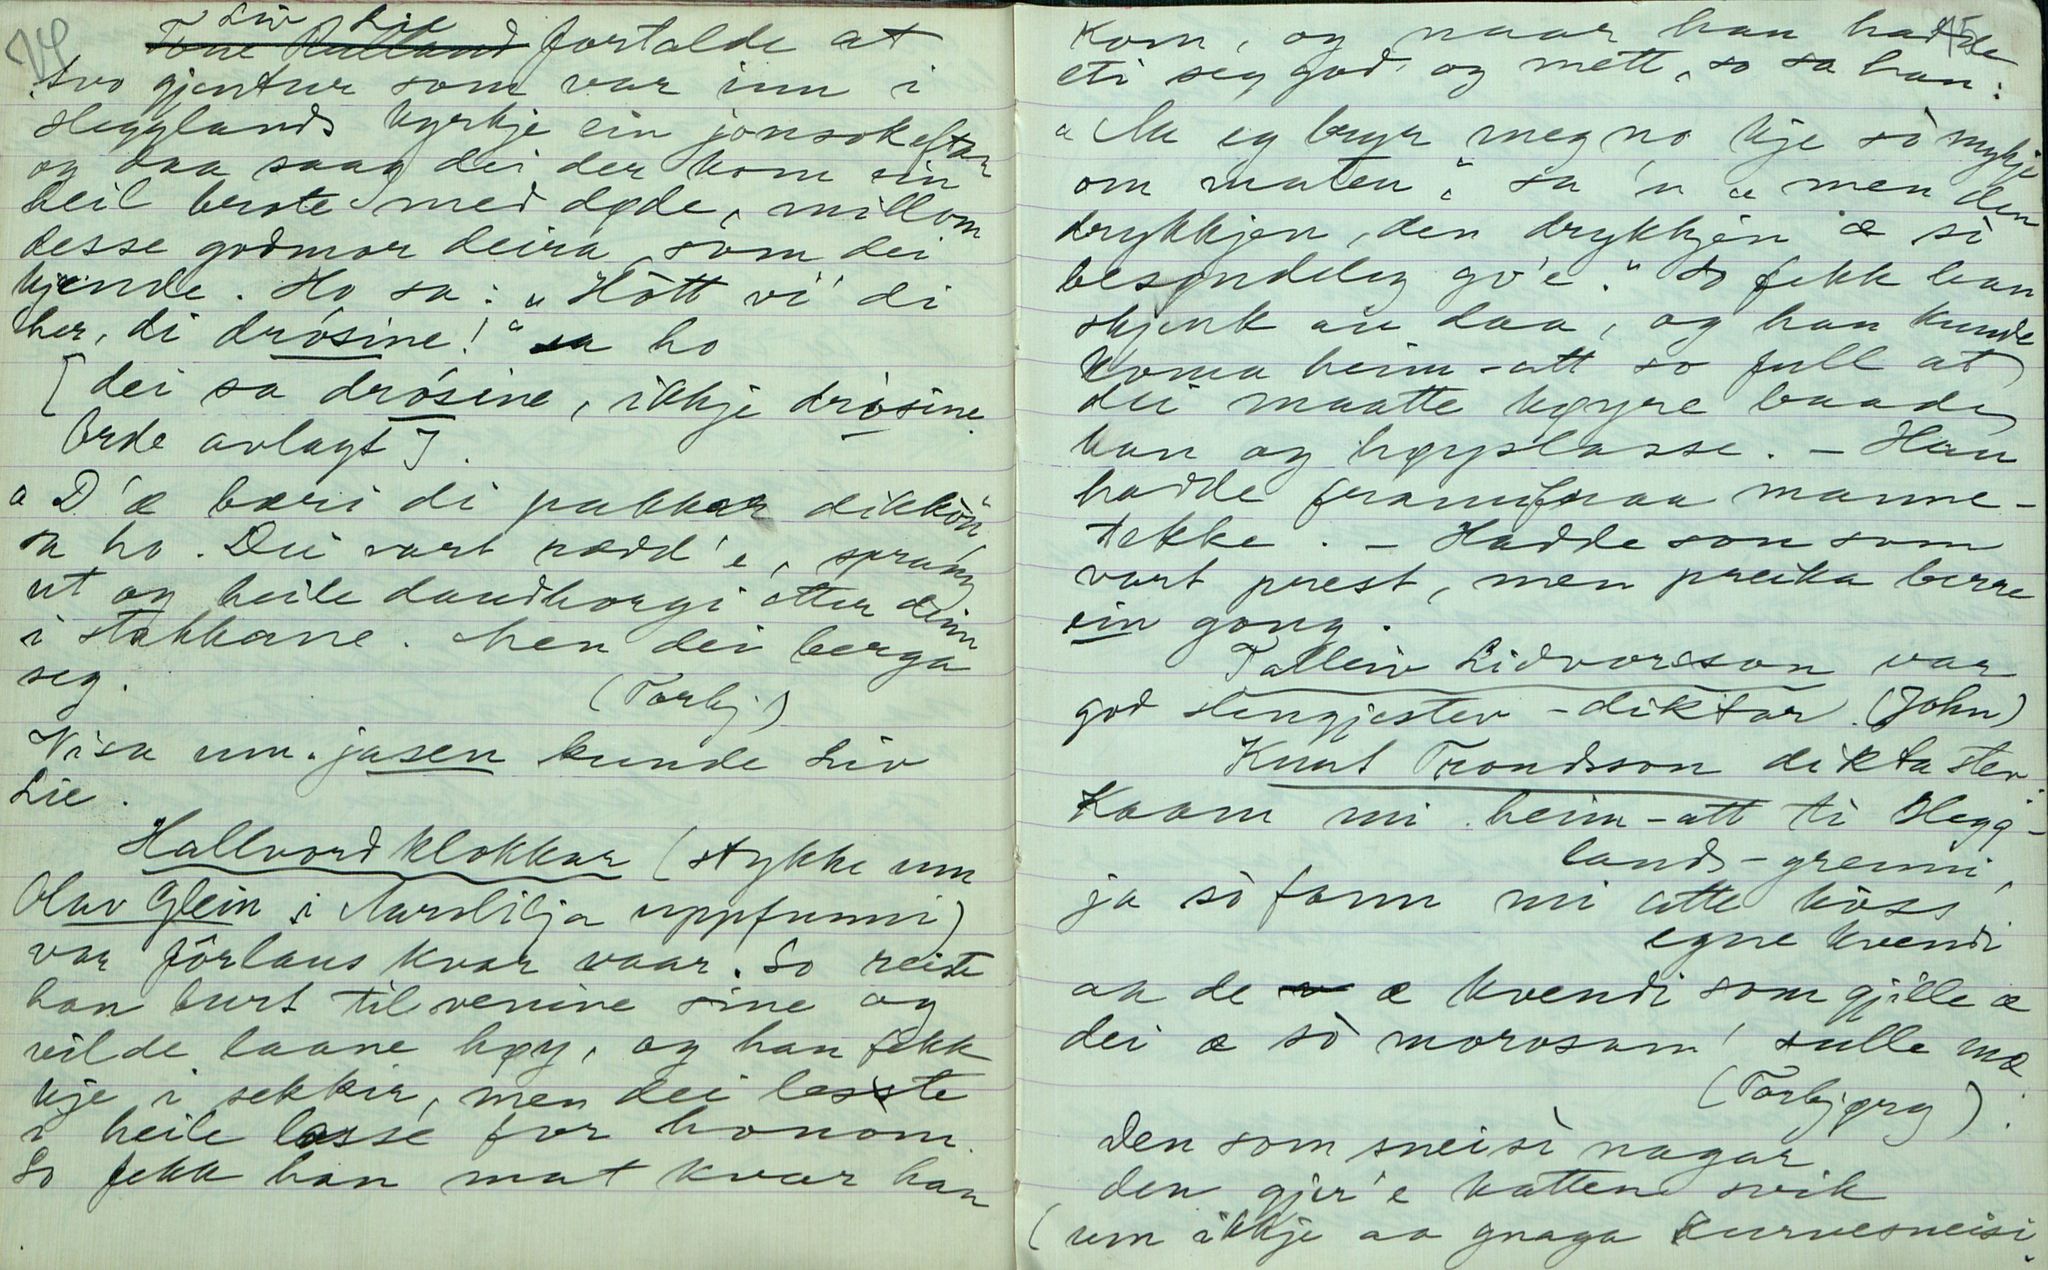 74
Liv Lie
Tone Rulland fortalde at
tvo gjentur som var inn i
Hegglands kyrkje ein jonsokeftan
og daa saag dei der kom ein
heil brote med døde, millom
desse godmor deira som dei
kjende. Ho sa: „Hòtt vi' di
her, di drósine!" sa ho
[dei sa drósine, ikkje dròsine.
Orde avlagt].
„D'æ bæri di pakkar dikkòn"
sa ho. Dei vart rædd'e, sprang
ut og heile daudhorgi etter deim
i stakkane. Men dei berga
seg.
(Torbj)
Visa um jasen kunde Liv
Lie.
Hallvord klokkar (stykke um
Olav Glein i Aarslilja uppfunni)
var fôrlaus kvar vaar. So reiste
han burt til venine sine og
vilde laane høy, og han fekk
kje i sekkir, men dei lesste
i heile lasse for honom.
So fekk han mat kvar han
75
kom, og naar han hadde
eti seg god og mett, so sa han:
„Aa eg bryr meg no kje sò mykje
om maten" sa'n „men den
drykkjen, den drykkjen æ sò
besyndeleg go'e." So fekk han
skjenk au daa, og han kunde
koma heim-att so full at
dei maatte køyre baade
han og høyslasse. - Han
hadde framifraa manne-
tekke. - Hadde son som
vart prest, men preika berre
ein gong.
Talleiv Lidvorsson var
god slengjestev-diktar. (John)
Knut Trondsson dikta stev:
Kaam mi heim-att ti Hegg-
lands-grenni,
ja sò fann mi atte kòss
egne kvendi
aa de æ kvendi som gjille æ
dei æ sò morosam' sulle mæ
(Torbjørg).
Den som sneisì nagar
den gjer'e katten svik
(um ikkje aa gnaga kurvesneisi.